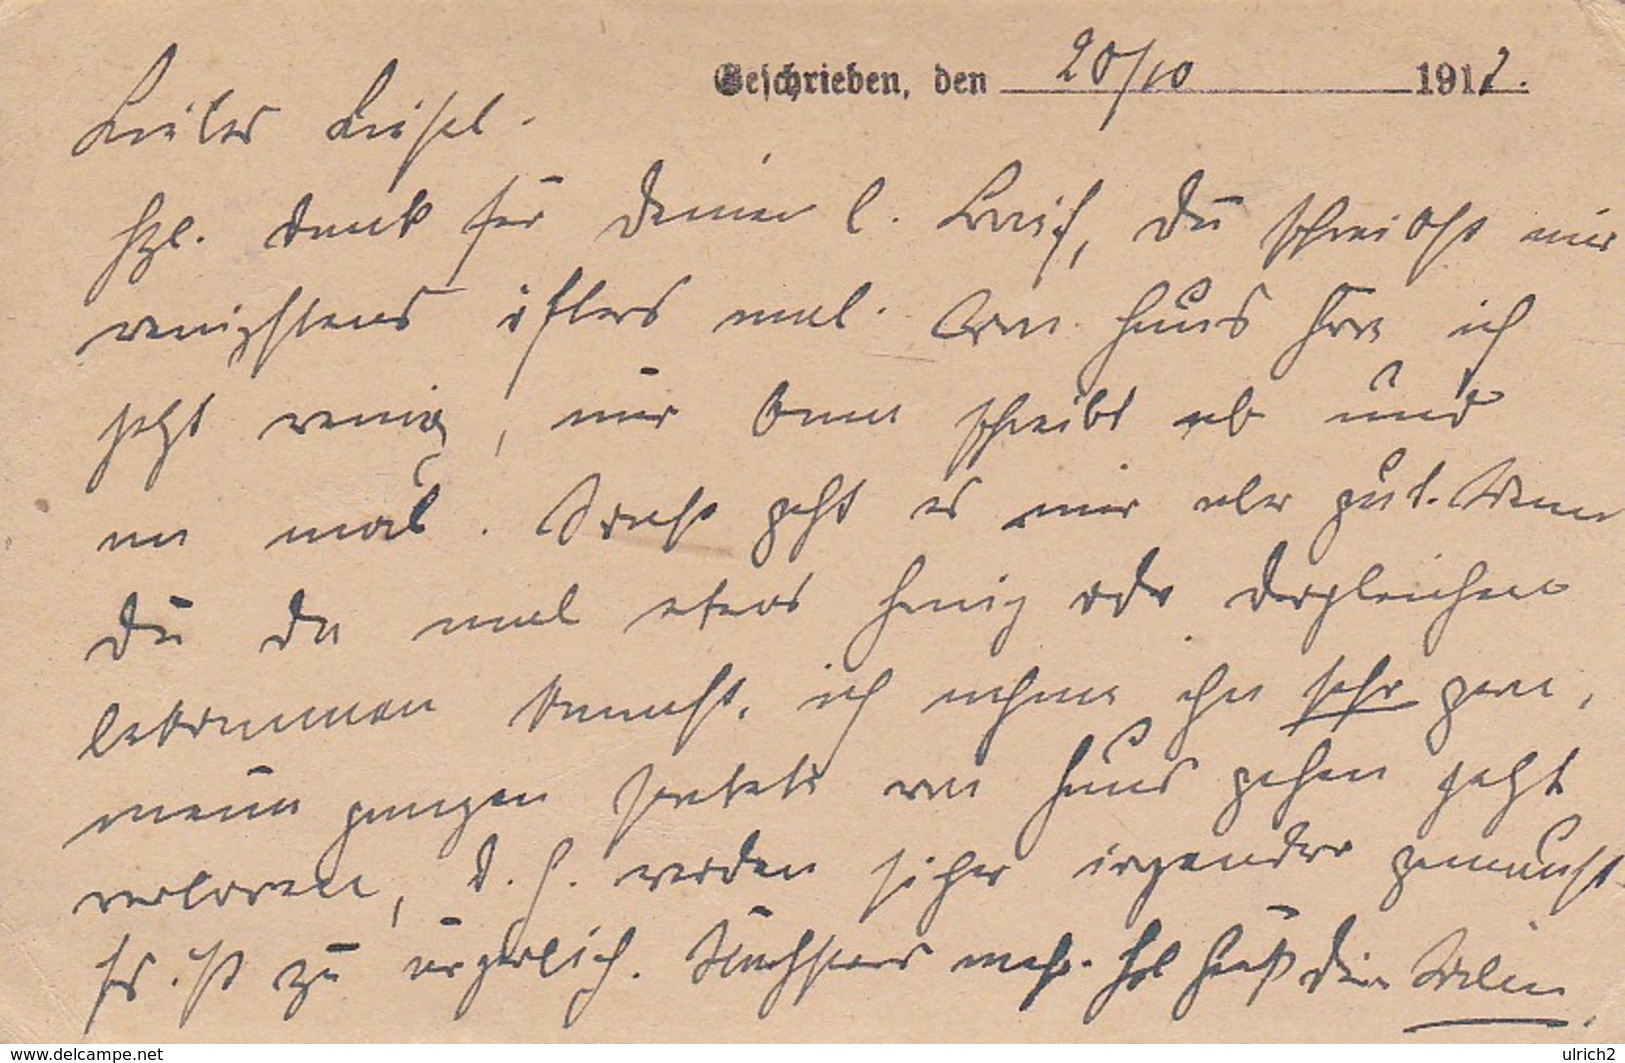 Geschrieben, den 20/10 1917.
Liebes Liesel.
Hzl. Dank für Deinen l. Brief, Du schreibst mir
wenigstens öfters mal. Von Haus höre ich
jetzt wenig, nur Anna schreibt ab und
an mal. Sonst geht es mir aber gut. Wenn
Du da mal etwas Honig oder dergleichen
bekommen kannst, ich nehme ihn sehr gern,
meine ganzen von Haus gehen jetzt
verloren, d. h. werden sicher irgendwo gemaust.
Es ist zu ärgerlich. Nächstens mehr. Hzl. Gruß Dein
delcampe.net
ulrich2